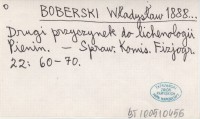 BOBERSKI Władysław 1888...
Drugi przyczynek do lichenologii
Pienin. — Spraw. Komis. Fizjogr.
22: 60-70.